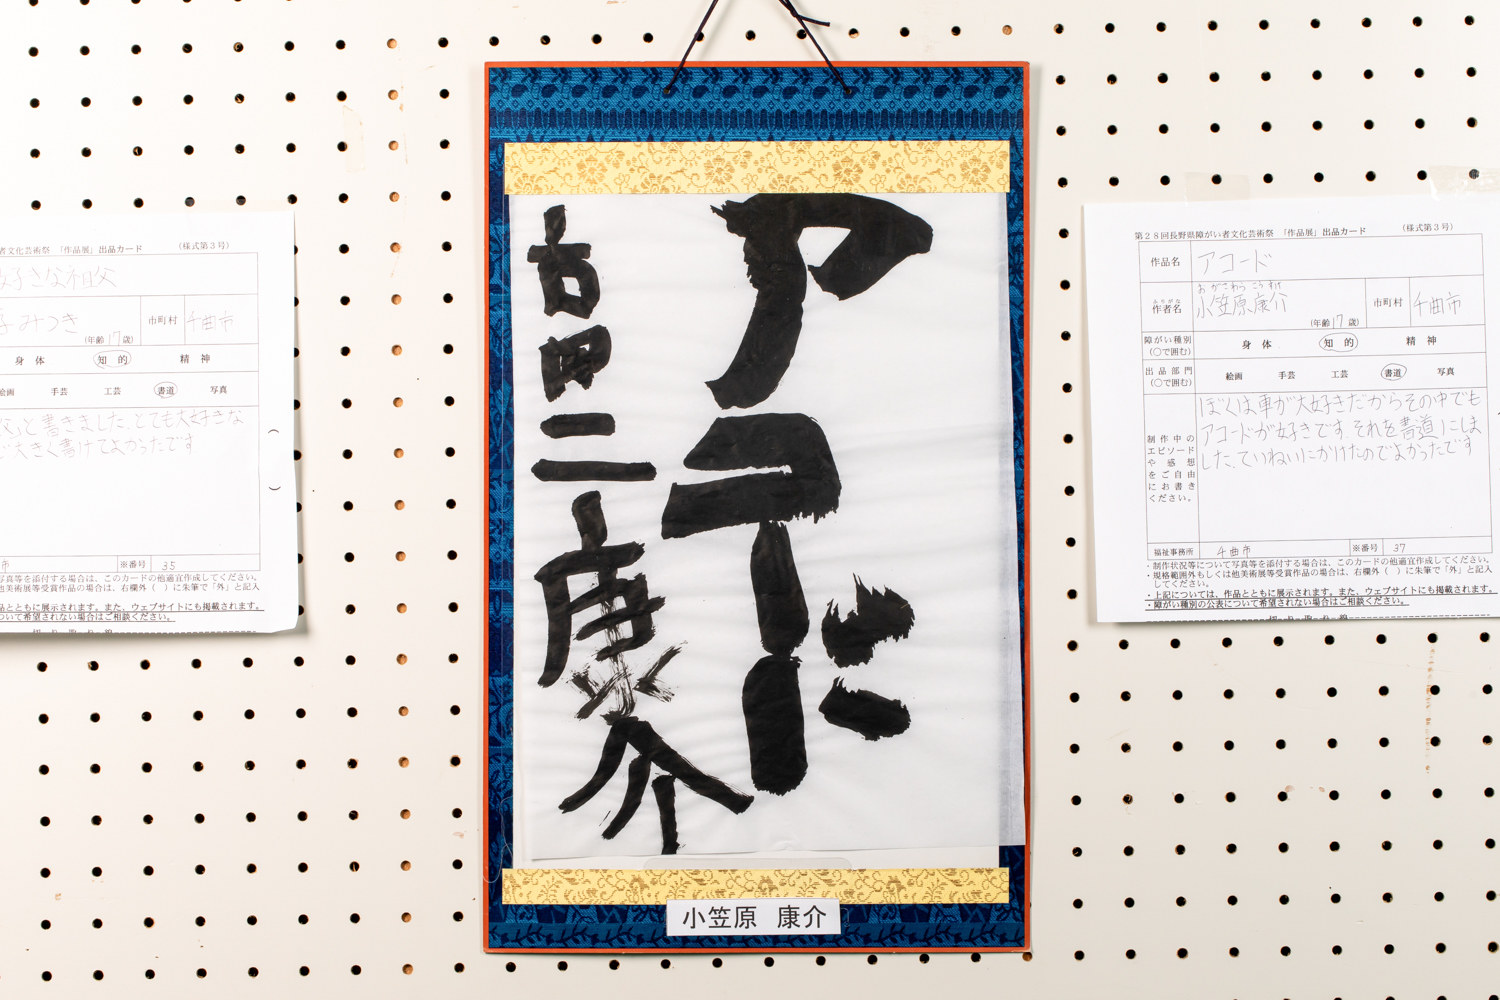 者文化芸術祭 「作品展」出品カード (様式第3号)
好きな祖父
みつき
(年齢 17 歳)
市町村
千曲市
身体 知的 精神
絵画 手芸 工芸 書道 写真
と書きました。とても大好きな
で大きく書けてよかったです
市
※番号 35
写真等を添付する場合は、このカードの他適宜作成してください。
他美術展等受賞作品の場合は、右欄外( )に朱筆で「外」と記入
品とともに展示されます。また、ウェブサイトにも掲載されます。
ついて希望されない場合はご相談ください。
アコード
高二
康介
小笠原 康介
第28回長野県障がい者文化芸術祭 「作品展」出品カード (様式第3号)
作品名 アコード
おがさわら こうすけ
ふりがな
作者名 小笠原康介
(年齢 17 歳)
市町村 千曲市
障がい種別
(○で囲む)
身体 知的 精神
出品部門
(○で囲む)
絵画 手芸 工芸 書道 写真
制作中の
エピソード
や感想
をご自由
にお書き
ください。
ぼくは車が大好きだからその中でも
アコードが好きです。それを書道にしま
した。ていねいにかけたのでよかったです
福祉事務所 千曲市 ※番号 37
・制作状況等について写真等を添付する場合は、このカードの他適宜作成してください。
・規格範囲外もしくは他美術展等受賞作品の場合は、右欄外( )に朱筆で「外」と記入
してください。
・上記については、作品とともに展示されます。また、ウェブサイトにも掲載されます。
・障がい種別の公表について希望されない場合はご相談ください。